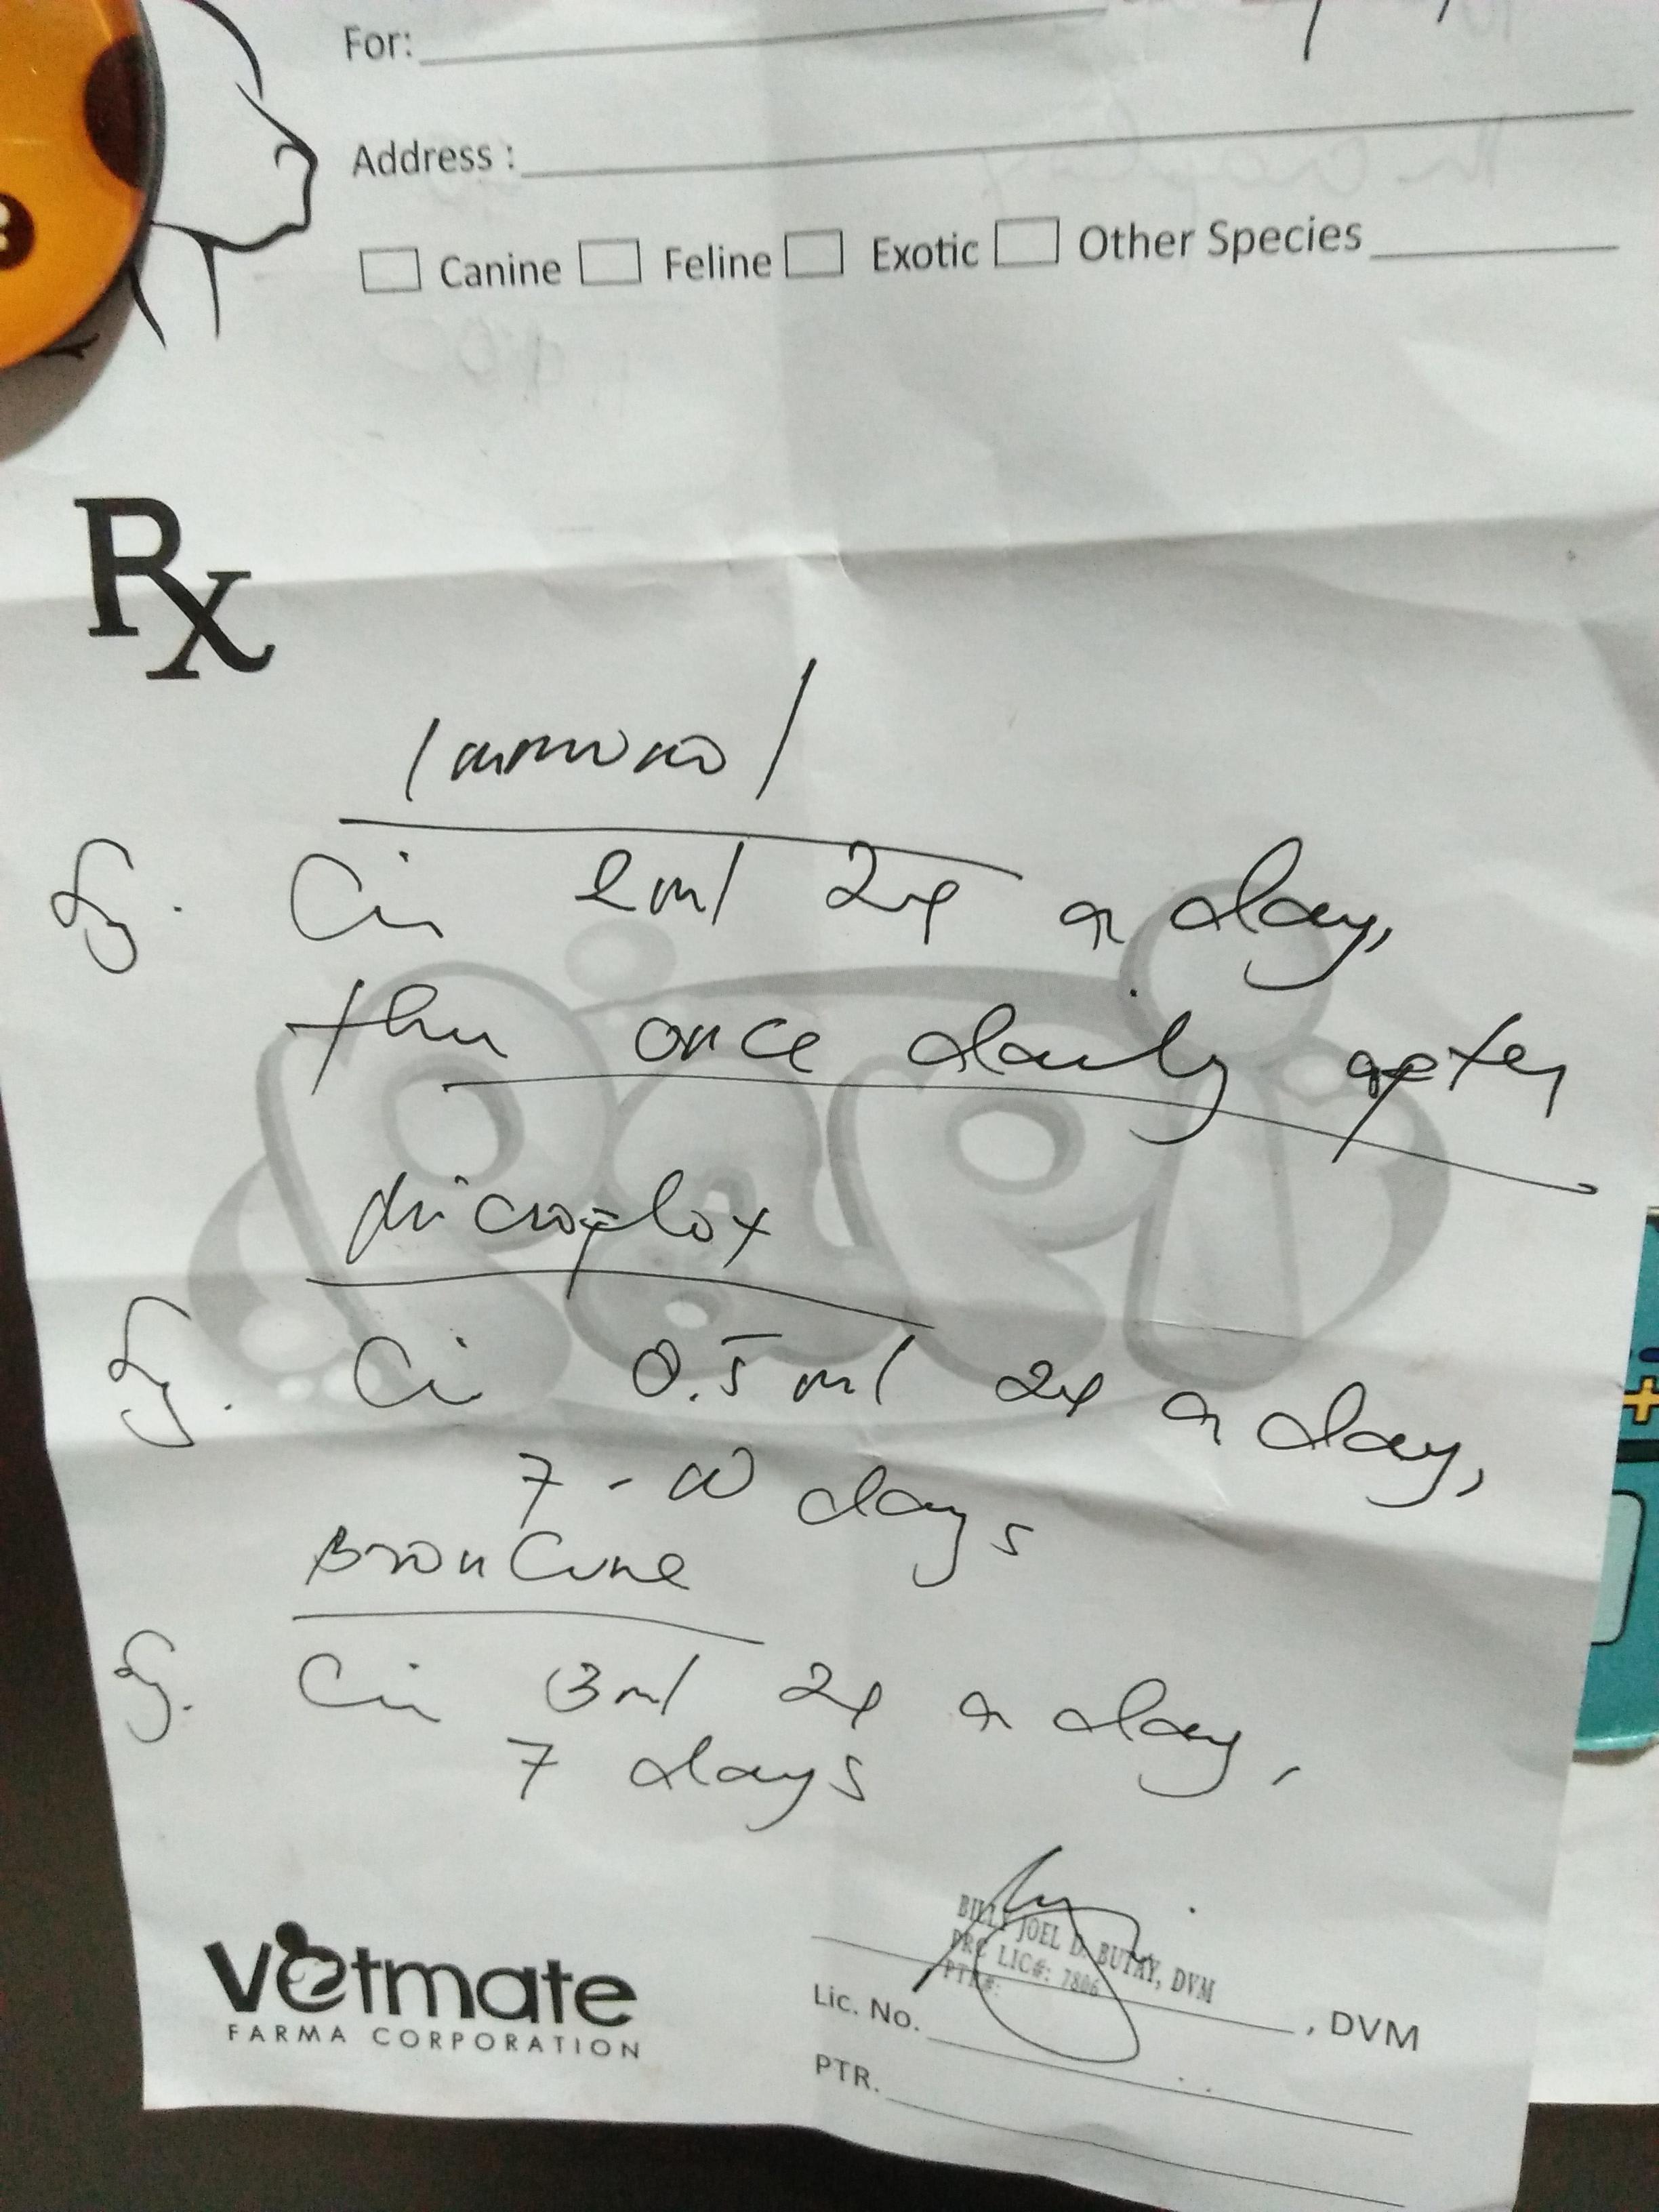 For:
Address :
Canine Feline Exotic Other Species
Rx
Immunol
Sig. Cis 2ml 2x a day,
then once daily after
Microflox
Sig. Cis 0.5 ml 2x a day,
7-10 days
BronCure
Sig. Cis 3ml 2x a day,
7 days
PaPi
Vetmate
FARMA CORPORATION
BILLY JOEL D. BUTAY, DVM
PRC LIC#: 7806
PTR#:
, DVM
Lic. No.
PTR.